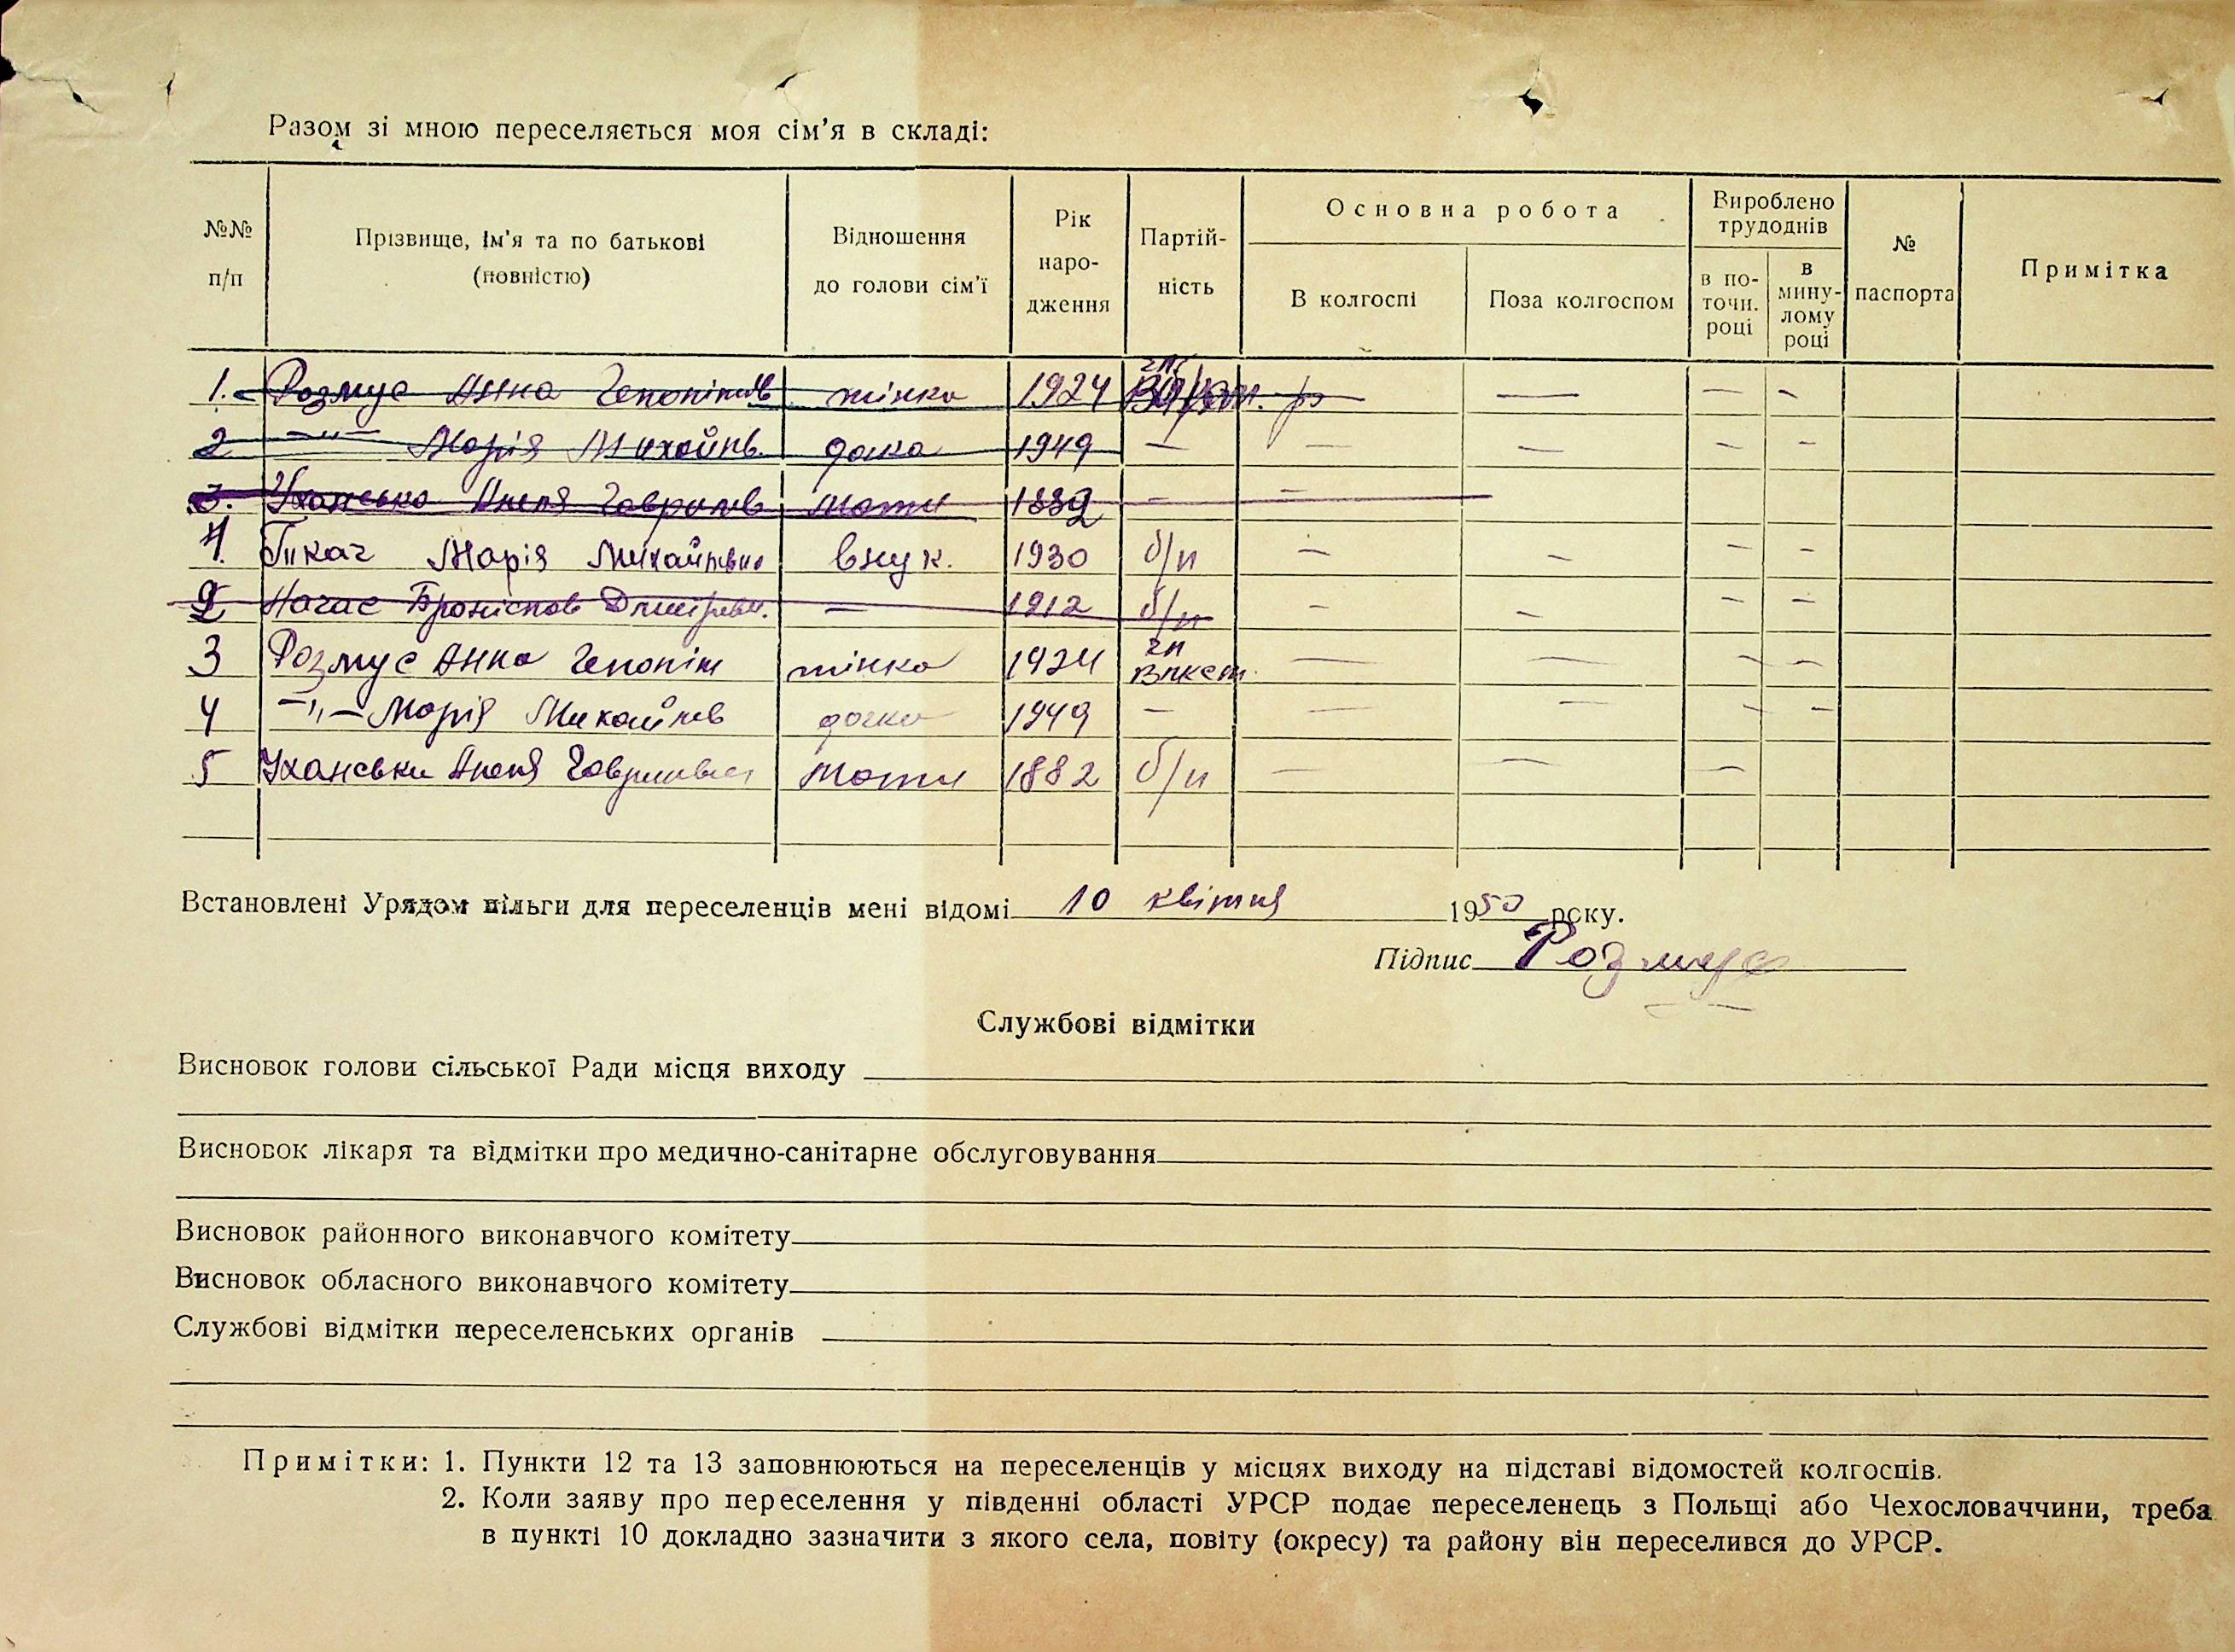 Разом зі мною переселяється моя сім'я в складі:
№№ п/п
Прізвище, ім'я та по батькові (повністю)
Відношення до голови сім'ї
Рік наро-дження
Партій-ність
Основна робота
В колгоспі
Поза колгоспом
Вироблено трудоднів
в по-точн. році
в мину-лому році
№ паспорта
Примітка
1. Розмус Анна жінка 1924 — — —
2 —"— Марія Михайлів. дочка 1949 — — — — —
3. Уханська Анеля Гаврилів мати 1882 — —
1. Ткач Марія Михайлівна внук. 1930 б/п — — — —
2 Броніслав 1912 б/п — — — —
3 Розмус Анна жінка 1924 чл ВЛКСМ. — — — —
4 —"— Марія Михайлів дочка 1949 — — — — —
5 Уханська Анеля Гаврилівна мати 1882 б/п — — —
Встановлені Урядом пільги для переселенців мені відомі 10 квітня 1950 року.
Підпис Розмус
Службові відмітки
Висновок голови сільської Ради місця виходу
Висновок лікаря та відмітки про медично-санітарне обслуговування
Висновок районного виконавчого комітету
Висновок обласного виконавчого комітету
Службові відмітки переселенських органів
Примітки: 1. Пункти 12 та 13 заповнюються на переселенців у місцях виходу на підставі відомостей колгоспів.
2. Коли заяву про переселення у південні області УРСР подає переселенець з Польщі або Чехословаччини, треба
в пункті 10 докладно зазначити з якого села, повіту (окресу) та району він переселився до УРСР.